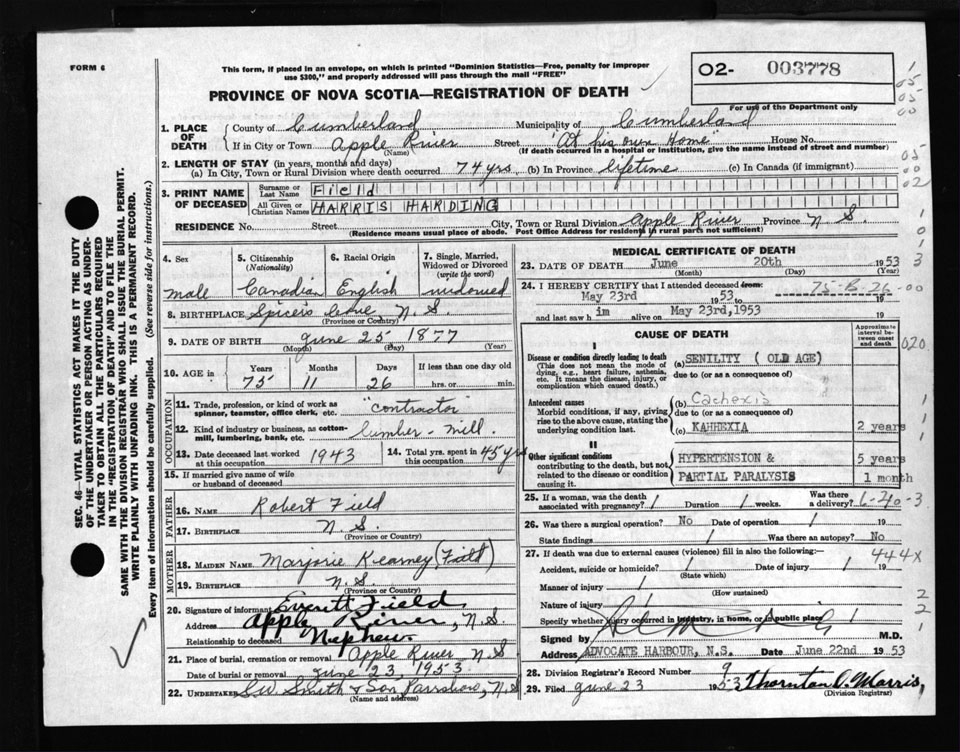 FORM 6
This form, if placed in an envelope, on which is printed "Dominion Statistics—Free, penalty for improper
use $300," and properly addressed will pass through the mail "FREE"
O2- 003778
For use of the Department only
PROVINCE OF NOVA SCOTIA—REGISTRATION OF DEATH
1. PLACE OF DEATH { County of Cumberland Municipality of Cumberland
If in City or Town Apple River Street "At his own Home" House No.
(Name) (If death occurred in a hospital or institution, give the name instead of street and number)
2. LENGTH OF STAY (in years, months and days)
(a) In City, Town or Rural Division where death occurred 74 yrs (b) In Province lifetime (c) In Canada (if immigrant)
3. PRINT NAME OF DECEASED { Surname or Last Name Field
All Given or Christian Names HARRIS HARDING
RESIDENCE No. Street City, Town or Rural Division Apple River Province N S.
(Residence means usual place of abode. Post Office Address for residents in rural parts not sufficient)
4. Sex 5. Citizenship (Nationality) 6. Racial Origin 7. Single, Married, Widowed or Divorced (write the word)
male Canadian English widowed
8. BIRTHPLACE Spicers Cove N S.
(Province or Country)
9. DATE OF BIRTH June 25 1877
(Month) (Day) (Year)
10. AGE in Years Months Days If less than one day old
75 11 26 hrs. or min.
OCCUPATION
11. Trade, profession, or kind of work as spinner, teamster, office clerk, etc. "contractor"
12. Kind of industry or business, as cotton-mill, lumbering, bank, etc. lumber - mill.
13. Date deceased last worked at this occupation 1943 14. Total yrs. spent in this occupation 45 yrs
15. If married give name of wife or husband of deceased
FATHER
16. NAME Robert Field
17. BIRTHPLACE N S.
(Province or Country)
MOTHER
18. MAIDEN NAME Marjorie Kearney (Field)
19. BIRTHPLACE N. S.
(Province or Country)
20. Signature of informant Everitt Field
Address Apple River, N. S.
Relationship to deceased Nephew.
21. Place of burial, cremation or removal Apple River N S.
Date of burial or removal June 23, 1953
22. UNDERTAKER Smith & Son Parrsboro, N.S
(Name and address)
MEDICAL CERTIFICATE OF DEATH
23. DATE OF DEATH June 20th 1953
(Month) (Day) (Year)
24. I HEREBY CERTIFY that I attended deceased from:
75-B-26-00
May 23rd 1953 to 19
and last saw him alive on May 23rd, 1953 19
CAUSE OF DEATH
Approximate interval between onset and death
I
Disease or condition directly leading to death
(This does not mean the mode of dying, e.g., heart failure, asthenia, etc. It means the disease, injury, or complication which caused death.)
(a) SENILITY ( OLD AGE)
due to (or as a consequence of)
Antecedent causes
Morbid conditions, if any, giving rise to the above cause, stating the underlying condition last.
(b) Cachexia
due to (or as a consequence of)
(c) KAHHEXIA 2 years
II
Other significant conditions
contributing to the death, but not related to the disease or condition causing it.
HYPERTENSION & 5 years
PARTIAL PARALYSIS 1 month
25. If a woman, was the death associated with pregnancy? / Duration / weeks. Was there a delivery? 6-20-3
26. Was there a surgical operation? No Date of operation / 19
State findings / Was there an autopsy? No
27. If death was due to external causes (violence) fill in also the following:—
444X
Accident, suicide or homicide? / Date of injury / 19
(State which)
Manner of injury /
(How sustained)
Nature of injury /
Specify whether injury occurred in industry, in home, or in public place /
Signed by M.D.
Address ADVOCATE HARBOUR, N.S. Date June 22nd 1953
28. Division Registrar's Record Number 9
29. Filed June 23 1953 Thornton D. Morris,
(Division Registrar)
SEC. 46—VITAL STATISTICS ACT MAKES IT THE DUTY
OF THE UNDERTAKER OR PERSON ACTING AS UNDER-
TAKER TO OBTAIN ALL THE PARTICULARS REQUIRED
IN THE "REGISTRATION OF DEATH" AND TO FILE THE
SAME WITH THE DIVISION REGISTRAR WHO SHALL ISSUE THE BURIAL PERMIT.
WRITE PLAINLY WITH UNFADING INK. THIS IS A PERMANENT RECORD.
Every item of information should be carefully supplied. (See reverse side for instructions.)